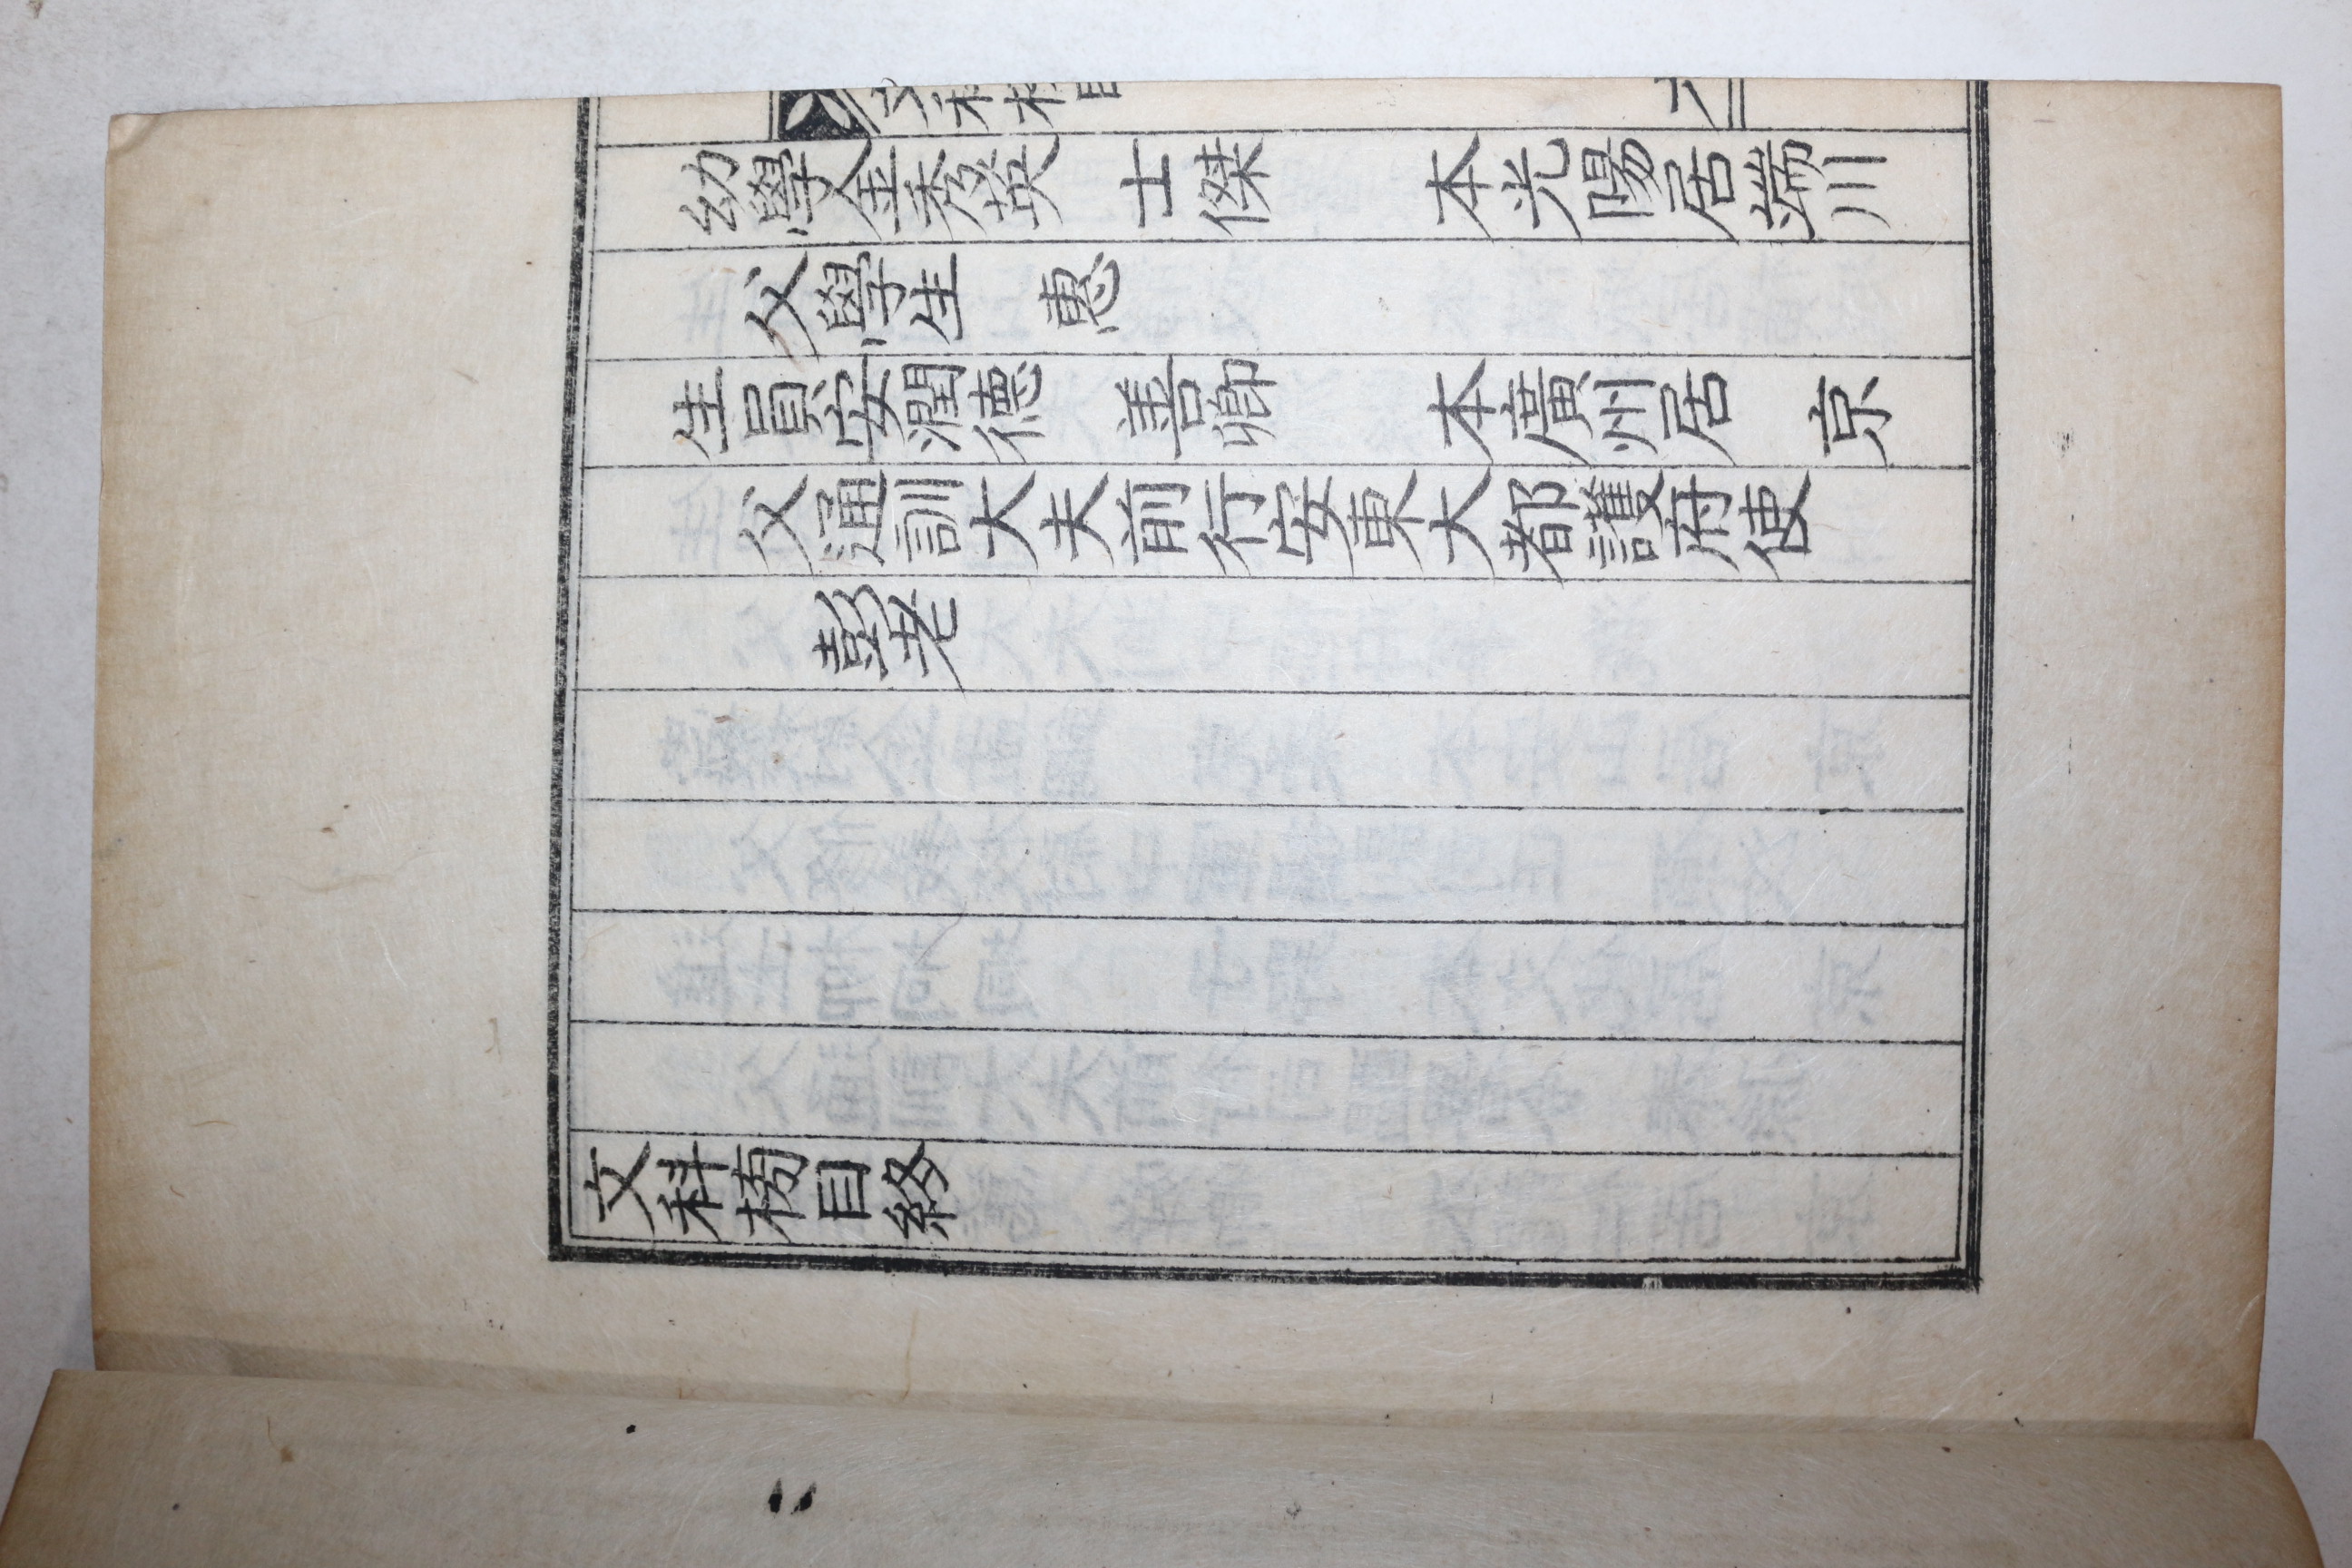 文科榜目
六
幼學金秀英　士傑　本光陽居端川
父學生　惠
生員安潤德　善卿　本廣州居　京
父通訓大夫前行安東大都護府使
彭老
文科榜目終